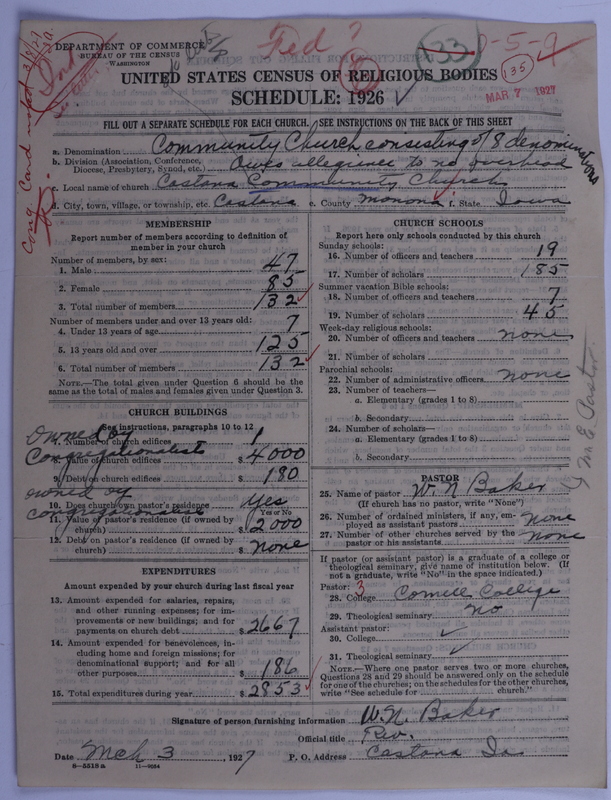 DEPARTMENT OF COMMERCE
BUREAU OF THE CENSUS
WASHINGTON
Fed?
133
-5-9
135
MAR 7 1927
UNITED STATES CENSUS OF RELIGIOUS BODIES
SCHEDULE: 1926
FILL OUT A SEPARATE SCHEDULE FOR EACH CHURCH. SEE INSTRUCTIONS ON THE BACK OF THIS SHEET
a. Denomination Community Church consisting of 8 denominations
b. Division (Association, Conference, Diocese, Presbytery, Synod, etc.) Owes allegience to no overhead
c. Local name of church Castana Community Church
d. City, town, village, or township, etc. Castana e. County Monona f. State Iowa
MEMBERSHIP
Report number of members according to definition of
member in your church
Number of members, by sex:
1. Male 47
2. Female 85
3. Total number of members 132
Number of members under and over 13 years old:
4. Under 13 years of age 7
5. 13 years old and over 125
6. Total number of members 132
NOTE.—The total given under Question 6 should be
same as the total of males and females given under Question 3.
CHURCH BUILDINGS
See instructions, paragraphs 10 to 12
Owned by
Congregationalists
7. Number of church edifices 1
8. Value of church edifices $4000
9. Debt on church edifices $180
owned by
congregationalist
10. Does church own pastor's residence? Yes
Yes or No
11. Value of pastor's residence (if owned by
church) $2000
12. Debt on pastor's residence (if owned by
church) $None
EXPENDITURES
Amount expended by your church during last fiscal year
13. Amount expended for salaries, repairs,
and other running expenses; for im-
provements or new buildings; and for
payments on church debt $2667
14. Amount expended for benevolences, in-
cluding home and foreign missions; for
denominational support; and for all
other purposes $186
15. Total expenditures during year $2853
CHURCH SCHOOLS
Report here only schools conducted by this church
Sunday schools:
16. Number of officers and teachers 19
17. Number of scholars 185
Summer vacation Bible schools:
18. Number of officers and teachers 7
19. Number of scholars 45
Week-day religious schools:
20. Number of officers and teachers none
21. Number of scholars
Parochial schools:
22. Number of administrative officers none
23. Number of teachers—
a. Elementary (grades 1 to 8)
b. Secondary
24. Number of scholars—
a. Elementary (grades 1 to 8)
b. Secondary
PASTOR
25. Name of pastor W. N Baker
(If church has no pastor, write "None")
26. Number of ordained ministers, if any, em-
ployed as assistant pastors None
27. Number of other churches served by the
pastor or his assistants None
If pastor (or assistant pastor) is a graduate of a college or
theological seminary, give name of institution below. (If
not a graduate, write "No" in the space indicated.)
Pastor: 3
28. College Cornell College
29. Theological seminary No
Assistant pastor:
30. College
31. Theological seminary
NOTE.—Where one pastor serves two or more churches,
Questions 28 and 29 should be answered only on the schedule
for one of the churches; on the schedules for the other churches,
write "See schedule for church."
Signature of person furnishing information W. N. Baker
Official title Rev.
Date Mch 3, 1927 P. O. Address Castana Ia
8—5518a 11—9064
M E Pastor